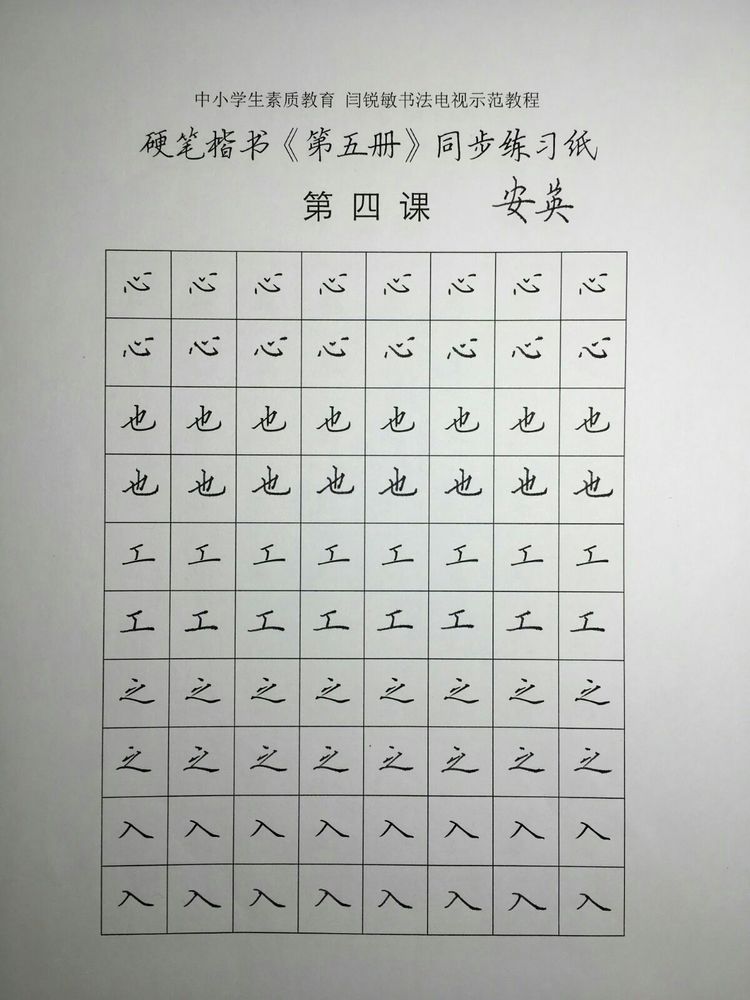 中小学生素质教育 闫锐敏书法电视示范教程
硬笔楷书《第五册》同步练习纸
第四课 安英
心 心 心 心 心 心 心 心
心 心 心 心 心 心 心 心
也 也 也 也 也 也 也 也
也 也 也 也 也 也 也 也
工 工 工 工 工 工 工 工
工 工 工 工 工 工 工 工
之 之 之 之 之 之 之 之
之 之 之 之 之 之 之 之
入 入 入 入 入 入 入 入
入 入 入 入 入 入 入 入